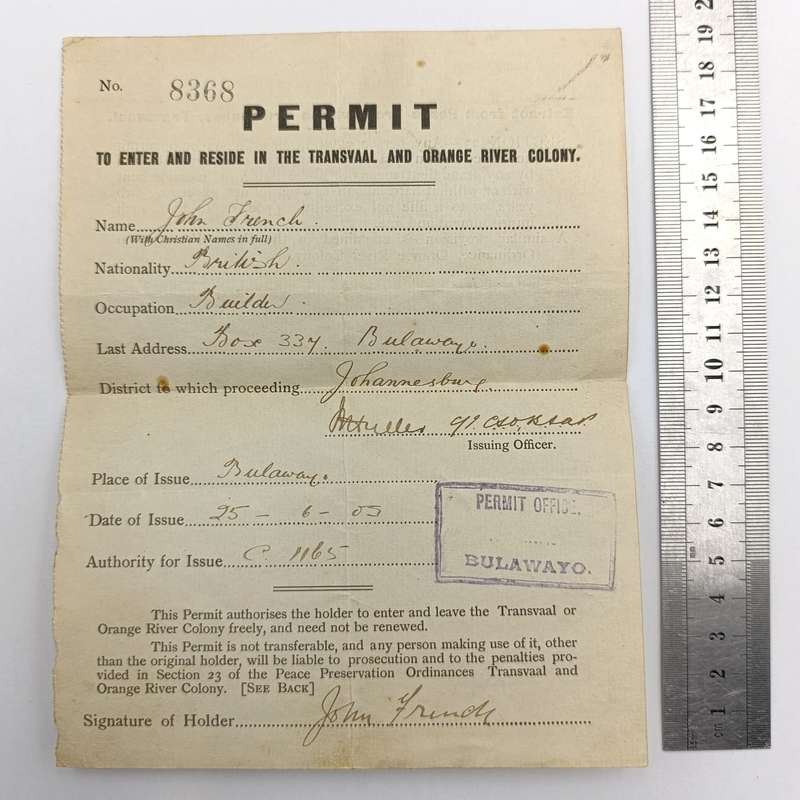 No. 8368
PERMIT
TO ENTER AND RESIDE IN THE TRANSVAAL AND ORANGE RIVER COLONY.
Name John French.
(With Christian Names in full)
Nationality British.
Occupation Builder.
Last Address Box 337. Bulawayo.
District to which proceeding Johannesburg.
Issuing Officer.
Place of Issue Bulawayo.
Date of Issue 25 - 6 - 03
Authority for Issue C 1165
PERMIT OFFICE.
BULAWAYO.
This Permit authorises the holder to enter and leave the Transvaal or
Orange River Colony freely, and need not be renewed.
This Permit is not transferable, and any person making use of it, other
than the original holder, will be liable to prosecution and to the penalties pro-
vided in Section 23 of the Peace Preservation Ordinances Transvaal and
Orange River Colony. [SEE BACK]
Signature of Holder John French
cm 1 2 3 4 5 6 7 8 9 10 11 12 13 14 15 16 17 18 19